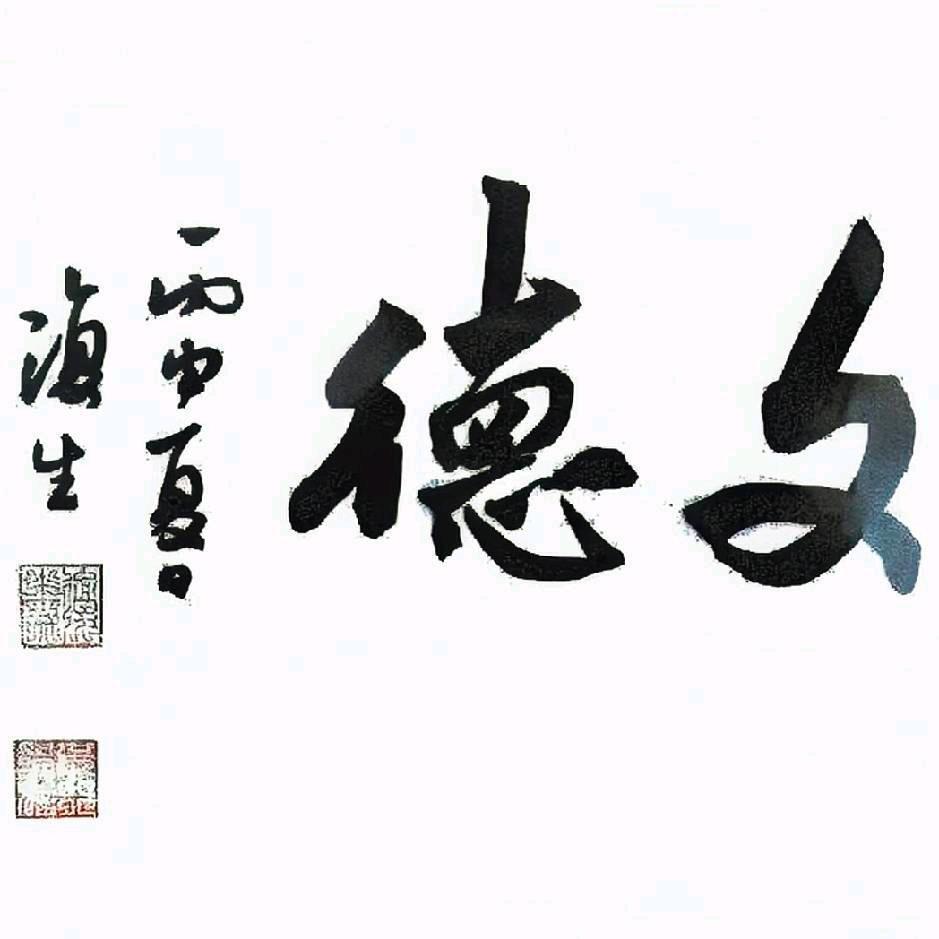 文德
丙申夏日
海生